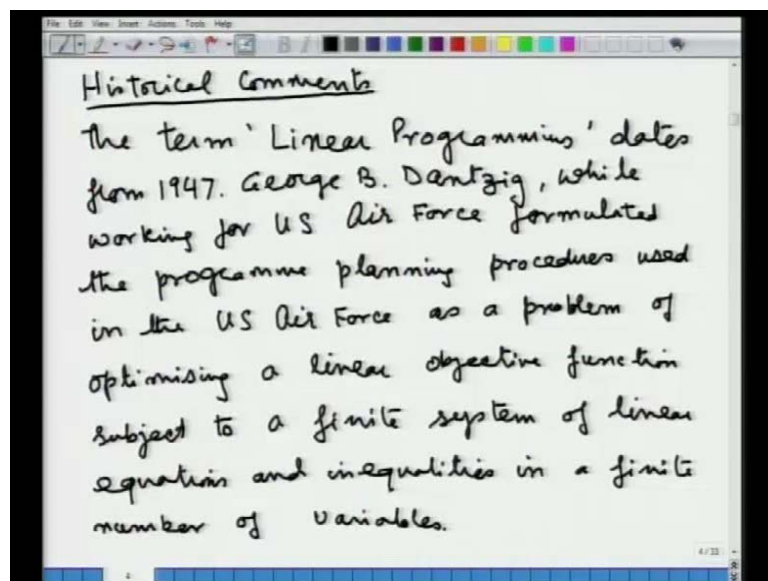 File Edit View Insert Actions Tools Help
Historical Comments
The term 'Linear Programming' dates
from 1947. George B. Dantzig, while
working for US Air Force formulated
the programme planning procedures used
in the US Air Force as a problem of
optimising a linear objective function
subject to a finite system of linear
equations and inequalities in a finite
number of variables.
4/33
4